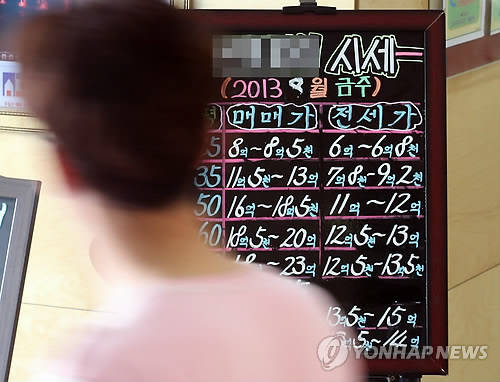 시세
(2013 8월 금주)
매매가 전세가
5 8억~8억5천 6억~6억8천
35 11억5천~13억 7억8천~9억2천
50 16억~18억5천 11억~12억
60 18억5천~20억 12억5천~13억
~23억 12억5천~13억5천
13억5천~15억
5천~14억
YONHAP NEWS